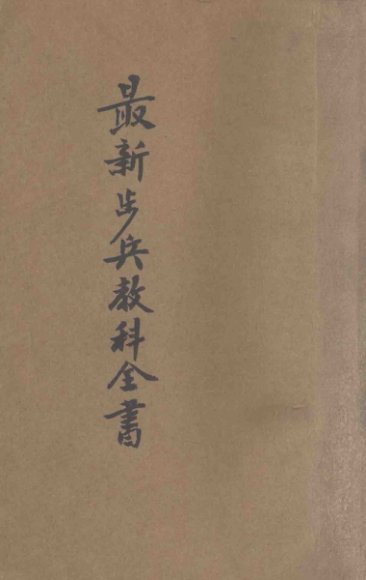 最新步兵教科全書